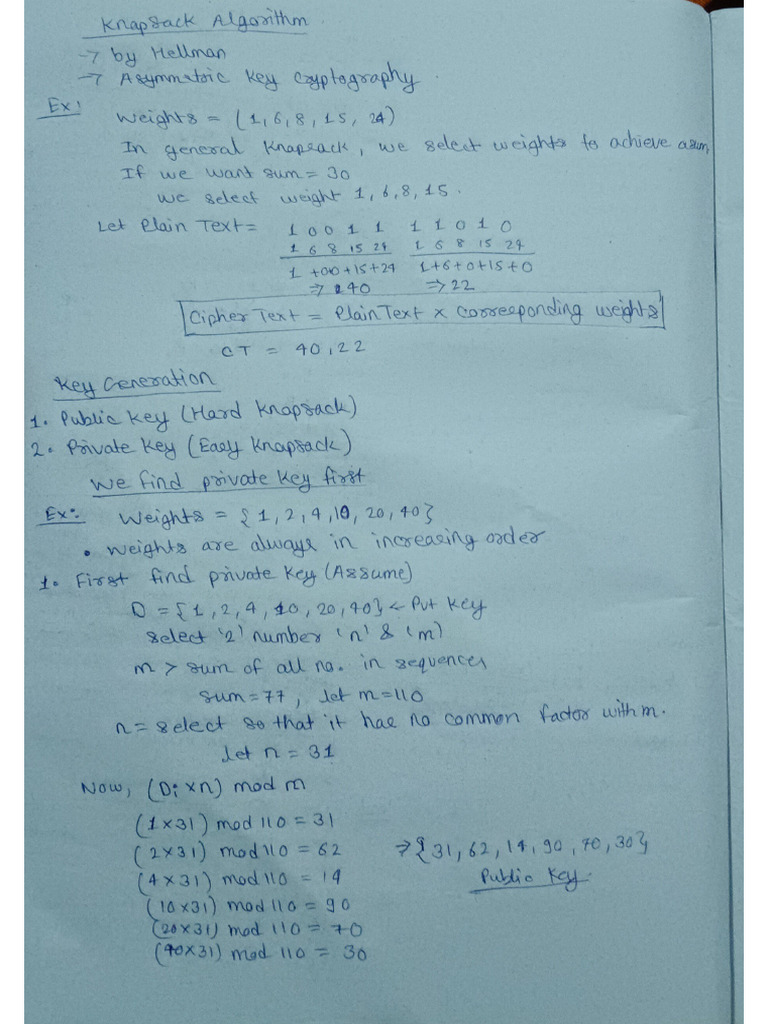 Knapsack Algorithm
→ by Hellman
→ Asymmetric Key Cryptography.
Ex: Weights = (1, 6, 8, 15, 24)
In general Knapsack, we select weights to achieve a sum,
If we want sum = 30
we select weight 1, 6, 8, 15.
Let Plain Text = 1 0 0 1 1   1 1 0 1 0
1 6 8 15 24   1 6 8 15 24
1 +0+0+15+24   1+6+0+15+0
⇒ 40   ⇒ 22
Cipher Text = Plain Text x corresponding weights
CT = 40, 22
Key Generation
1. Public Key (Hard Knapsack)
2. Private Key (Easy Knapsack)
We find private key first
Ex: Weights = {1, 2, 4, 10, 20, 40}
• Weights are always in increasing order
1. First find private key (Assume)
D = {1, 2, 4, 10, 20, 40} ← Put key
select '2' number 'n' & 'm)
m > sum of all no. in sequences
sum = 77, let m = 110
n = select so that it has no common factor with m.
Let n = 31
Now, (Di x n) mod m
(1 x 31) mod 110 = 31
(2 x 31) mod 110 = 62
(4 x 31) mod 110 = 14
(10 x 31) mod 110 = 90
(20 x 31) mod 110 = 70
(40 x 31) mod 110 = 30
⇒ {31, 62, 14, 90, 70, 30}
Public Key.